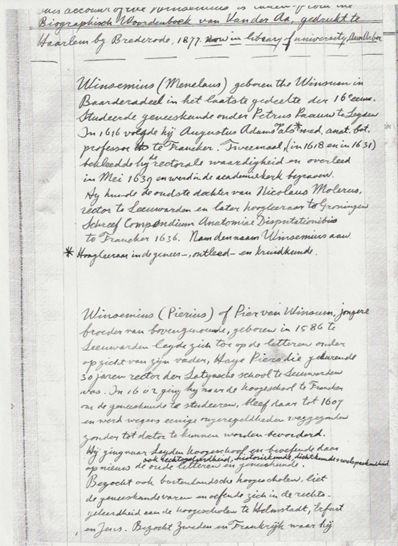 This account of the Winsemius is taken from the
Biographisch Woordenboek van Vander Aa, gedrukt te
Haarlem by Brederode, 1877. now in library of university Ann Arbor
Winsemius (Menelaus) geboren the Winsum in
Baarderadeel in het laatste gedeelte der 16e eeuw.
Studeerde geneeskunde onder Petrus Paauw te Leyden
In 1616 volgde hij Augustus Adama als* med. anat. bot.
professor to Franeker. Tweemaal, (in 1618 en in 1631)
bekleedde hy rectorale waardigheid en overleed
in Mei 1639 en werd in de academiekerk begraven.
Hy huwde de oudste dochter van Nicolaus Molerus,
rector te Leeuwarden en later hoogleeraar te Groningen
Schreef Compendium Anatomiae Disputationibus
te Franeker 1636. Nam den naam Winsemius aan
* Hoogleeraar in de genees-, ontleed- en kruidkunde.
Winsemius (Pierius) of Pier van Winsum, jongere
broeder van bovengenoemde, geboren in 1586 te
Leeuwarden legde zich toe op de letteren onder
opzicht van zijn vader, Hayo Piers die gedurende
30 jaren rector der Latynsche school te Leeuwarden
was. In 1602 ging hy naar de hoogeschool te Franeker
om de geneeskunde te studeeren, bleef daar tot 1607
en werd wegens eenige ongeregeldheden weggezonden
zonder tot doctor te kunnen worden bevorderd.
Hij ging naar Leyden hoogeschool en beoefende daar
ook rechtsgeleerdheid, historiekunde, dichtkunde en welsprekendheid
op nieuws de oude letteren en geneeskunde.
Bezocht ook buitenlandsche hoogescholen, liet
de geneeskunde varen en oefende zich in de rechts-
geleerdheid aan de hoogescholen te Helmstadt, Erfurt
en Jena. Bezocht Zweden en Frankrijk waar hij